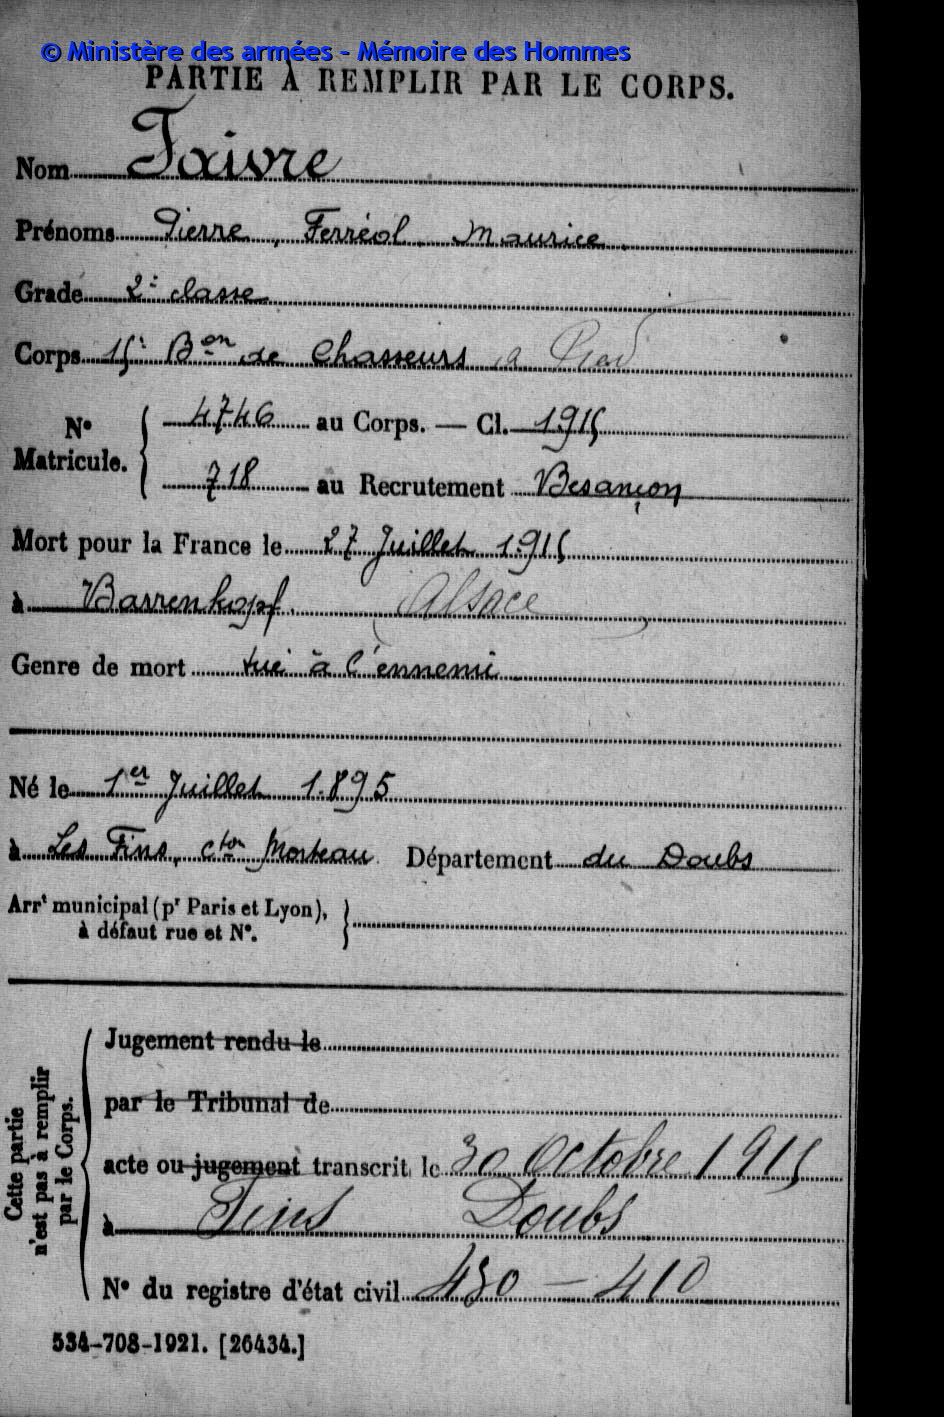 © Ministère des armées - Mémoire des Hommes
PARTIE À REMPLIR PAR LE CORPS.
Nom Faivre
Prénoms Pierre, Ferréol, Maurice.
Grade 2e classe
Corps 15e Bon de Chasseurs a Pied
No Matricule. { 4746 au Corps. — Cl. 1915
718 au Recrutement Besançon
Mort pour la France le 27 Juillet 1915
à Barrenkopf. (Alsace)
Genre de mort tué à l'ennemi
Né le 1er Juillet 1.895
à Les Fins, cton Morteau Département du Doubs
Arrt municipal (pr Paris et Lyon),
à défaut rue et No. }
Cette partie
n'est pas à remplir
par le Corps.
Jugement rendu le
par le Tribunal de
acte ou jugement transcrit le 30 Octobre 1915
à Fins Doubs
No du registre d'état civil 430 — 410
534-708-1921. [26434.]